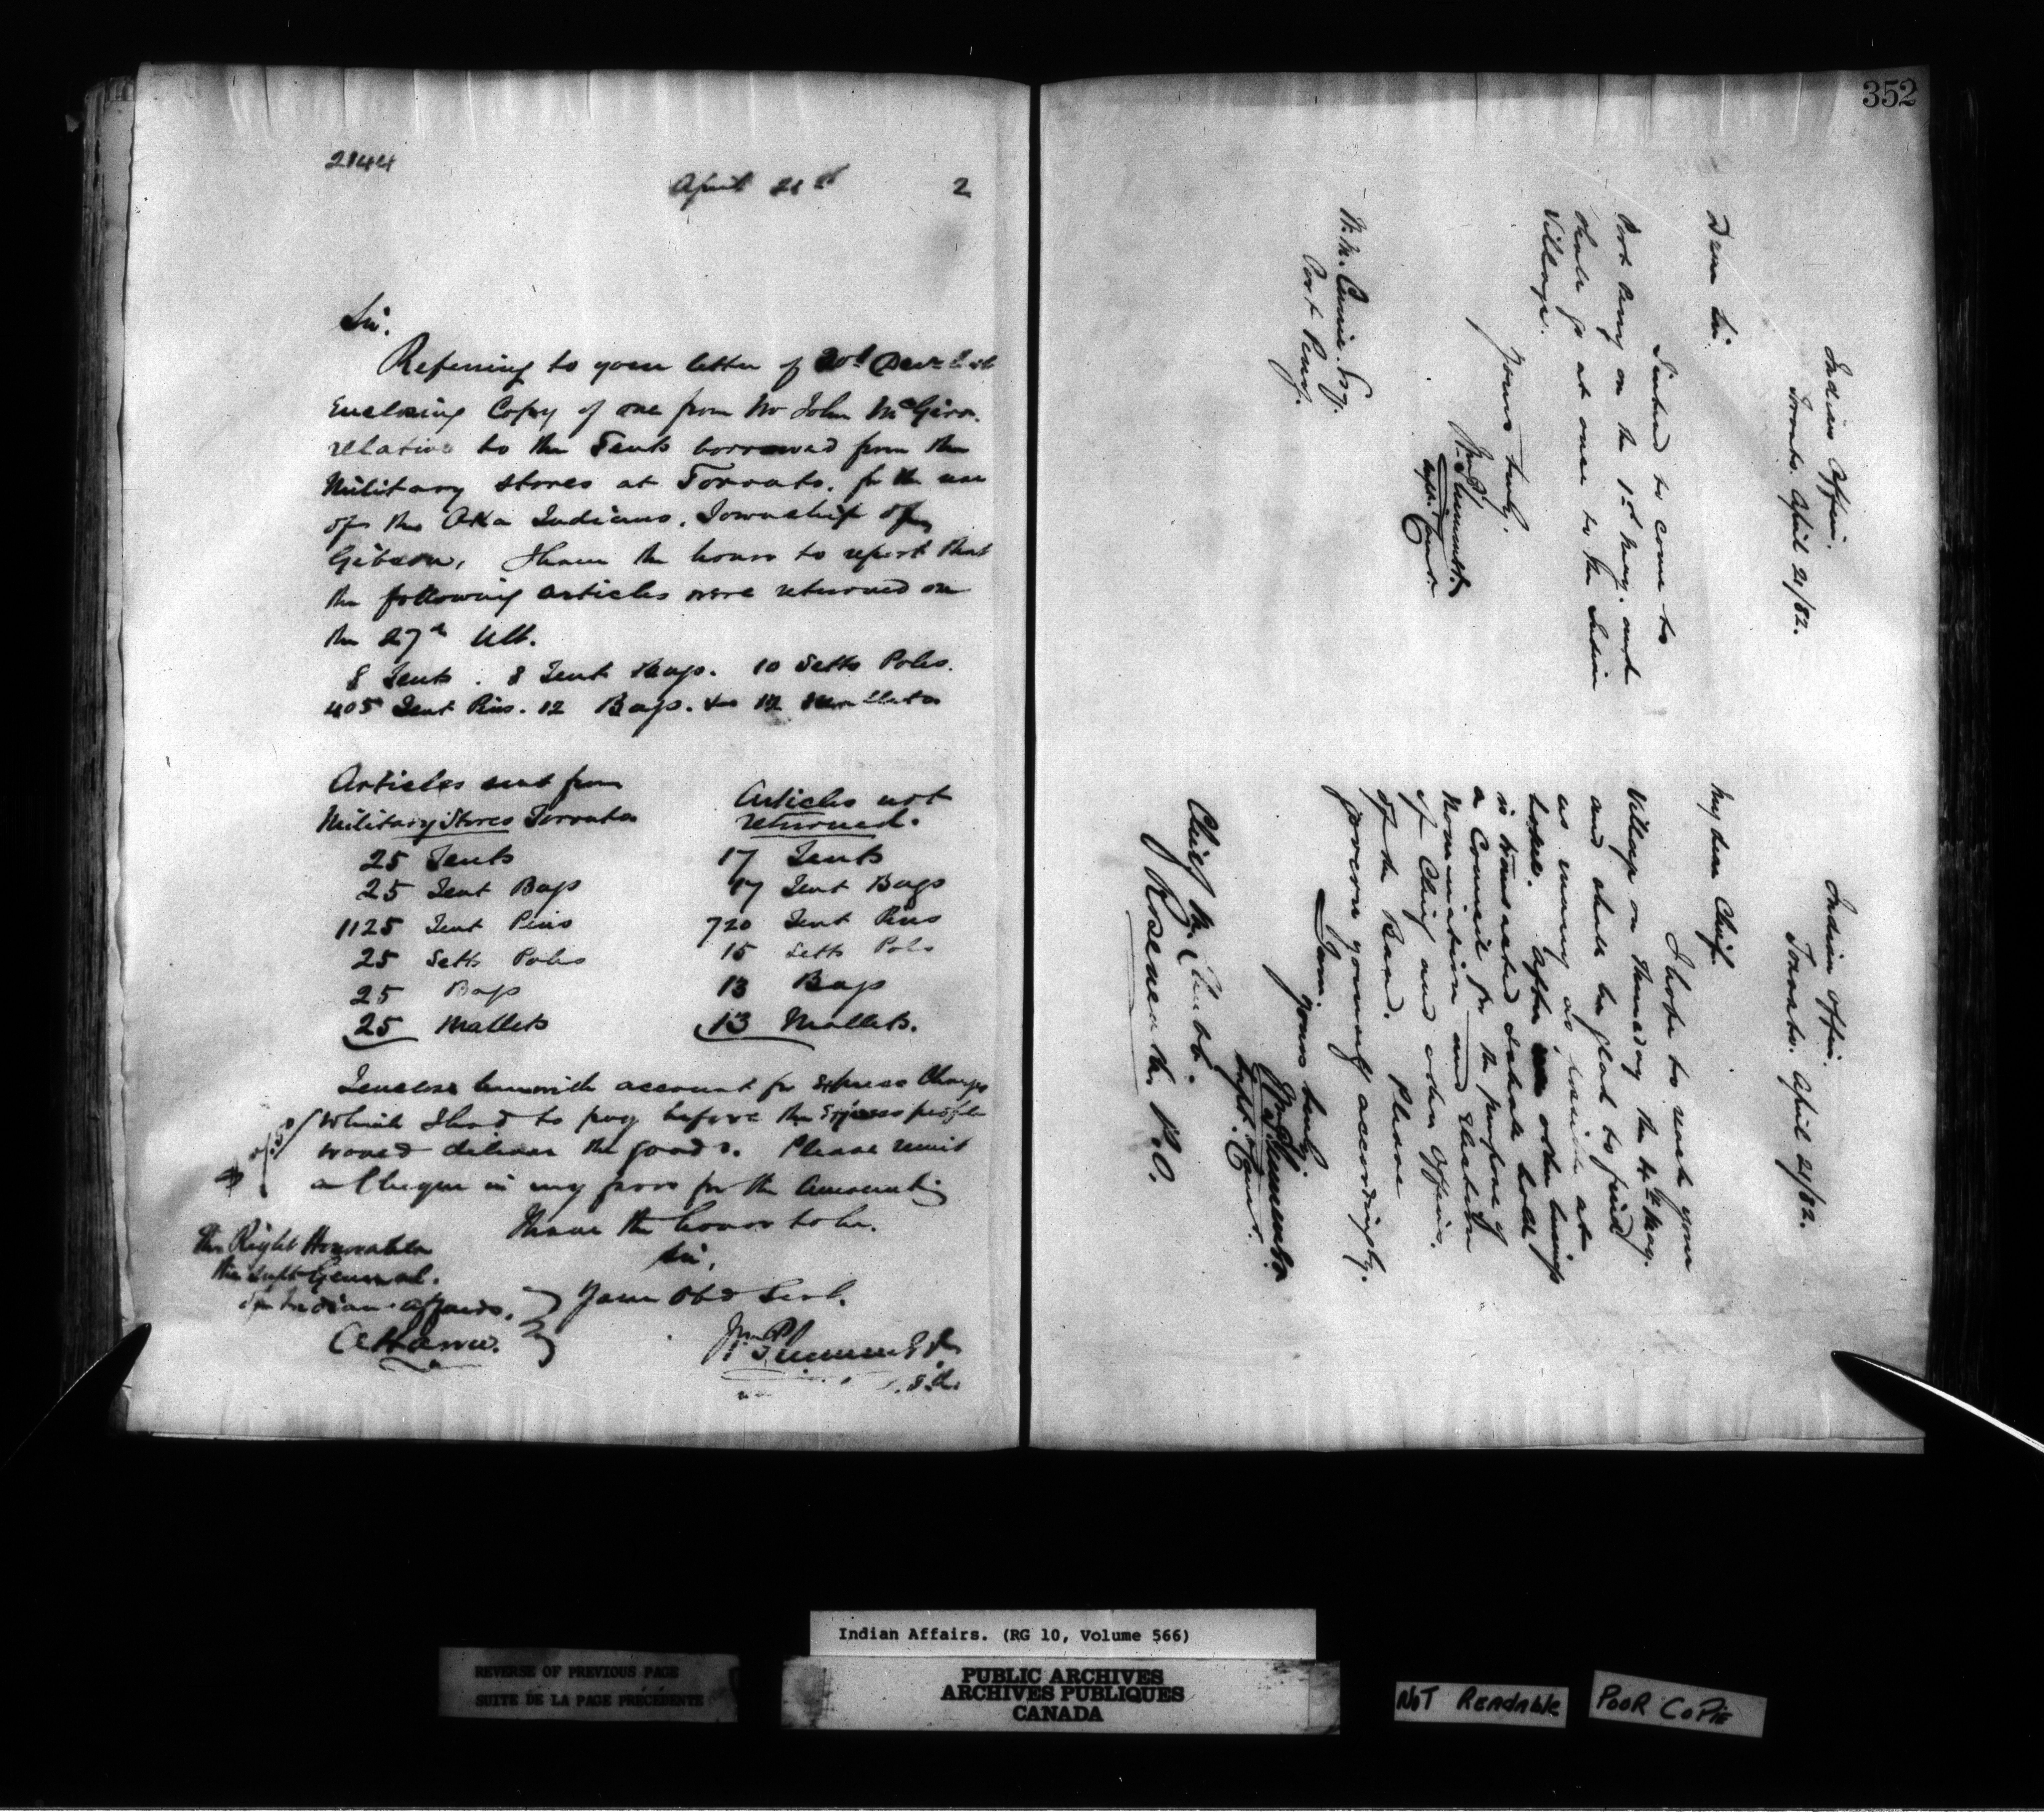 2144
April 21st 2
Sir.
Referring to your letter of 20th Decr
Enclosing Copy of one from Mr John McGirr.
relative to the Tents borrowed from the
Military Stores at Toronto, for the use
of the Oka Indians, Township of
Gibson, I have the honor to report that
the following articles were returned on
the 27th Ult.
8 Tents. 8 Tent Bags. 10 Setts Poles.
405 Tent Pins. 12 Bags. & 12 Mallets
Articles sent from
Military Stores Toronto
25 Tents
25 Tent Bags
1125 Tent Pins
25 Setts Poles
25 Bags
25 Mallets
Articles not
returned.
17 Tents
17 Tent Bags
720 Tent Pins
15 Setts Poles
13 Bags
13 Mallets.
I enclose herewith account for Express Charges
which I had to pay before the Express people
would deliver the goods. Please remit
a Cheque in my favor for the amount
I have the honor to be.
Sir,
Your Obd Servt.
Wm Plummer
The Right Honorable
The Supt General.
of Indian Affairs.
Ottawa.
352
Indian Office.
Toronto. April 21/82.
Dear Sir.
I intend to come to
Port Perry on the 1st May. and
shall go at once to the Indian
Village.
Yours truly.
Wm Plummer.
Supt. & Comr.
Esq.
Port Perry.
Indian Office.
Toronto. April 21/82.
My dear Chief.
I hope to reach your
Village on Thursday the 4th May.
and shall be glad to find
as many as possible at
home. After other business
is transacted I shall hold
a Council for the purpose of
Nomination and Election
of Chief and other Officers.
of the Band. Please
govern yourself accordingly.
I am.
Yours truly
Wm Plummer
Supt. & Comr.
Chief
Roseneath. P.O.
Indian Affairs. (RG 10, Volume 566)
REVERSE OF PREVIOUS PAGE
SUITE DE LA PAGE PRÉCÉDENTE
PUBLIC ARCHIVES
ARCHIVES PUBLIQUES
CANADA
NOT READABLE
POOR COPIE